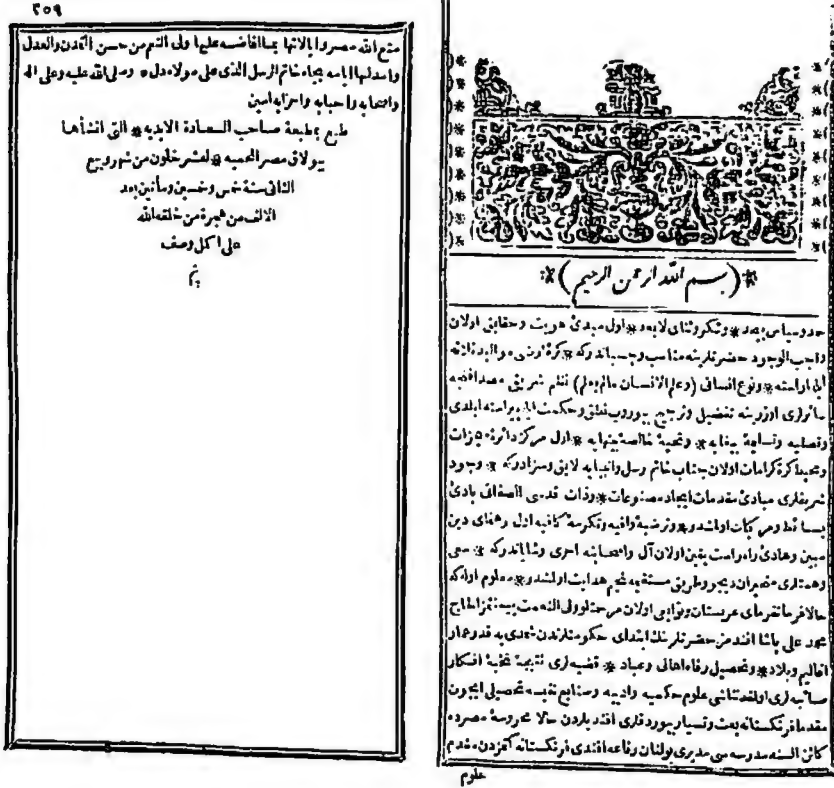 ٢٥٩
متع الله مصر وايالاتها بما افاضه عليها ولى النعم من حسن التمدن والعدل
واسدل لها ايامه بجاه خاتم الرسل الذى على مولاه دل * وصلى الله عليه وعلى اله
واصحابه واحبابه واحزابه امين
طبع بمطبعة صاحب السعادة الابديه * التى انشأها
ببولاق مصر المحميه * لعشر خلون من شهر ربيع
الثانى سنة خمس وخمسين ومأتين بعد
الالف من هجرة من خلقه الله
على اكمل وصف
تم
*(بسم الله الرحمن الرحيم)*
حمد وسپاس بيحد * وشكر وثناى لايعد * اول مبدئ هويت وحقايق اولان
واجب الوجود حضرتلرينه مناسب وچسپاندركه * كرۀ ارضى
ونوع انسانى (وعلم الانسان مالم يعلم) نظم شريفى
اوزرينه تفضيل وترجيح بيوروب نطق وحكمت ايله پيراسته ايلدى
وتصليه * وتحيۀ خالصۀ بينهايه * اول مركز دائرۀ
كرامات اولان جناب خاتم رسل وانبيايه لايق وسزادركه * وجود
شريفلرى مبادئ مقدمات ايجاد مصنوعات * وذات قدسى الصفاتى بادئ
اولمشدر * وترضيۀ وافيه وتكرمۀ كافيه اول رهنماى دين
مبين وهادئ راه راست يقين اولان آل واصحابنه احرى وشاياندركه * سعى
وهمتلرى وطريق مستقيمه هدايت اولمشدر * معلوم اوله كه
حالا فرمانفرماى عربستان اولان مرحمتلو ولى النعمت الحاج
محمد على پاشا افندمز حضرتلرينك ابتداى حكومتلرندن
اقاليم وبلاد * وتحصيل رفاه اهالى وعباد * نتيجۀ نخبۀ افكار
علوم حكميه وادبيه وصنايع نفيسه تحصيلى ايچون
مقدما فرنكستانه بعث وتسيار بيوردقلرى افنديلردن حالا محروسۀ مصرده
كائن السنه مدرسه سى مديرى بولنان رفاعه افندى فرنكستانه مقدم
علوم